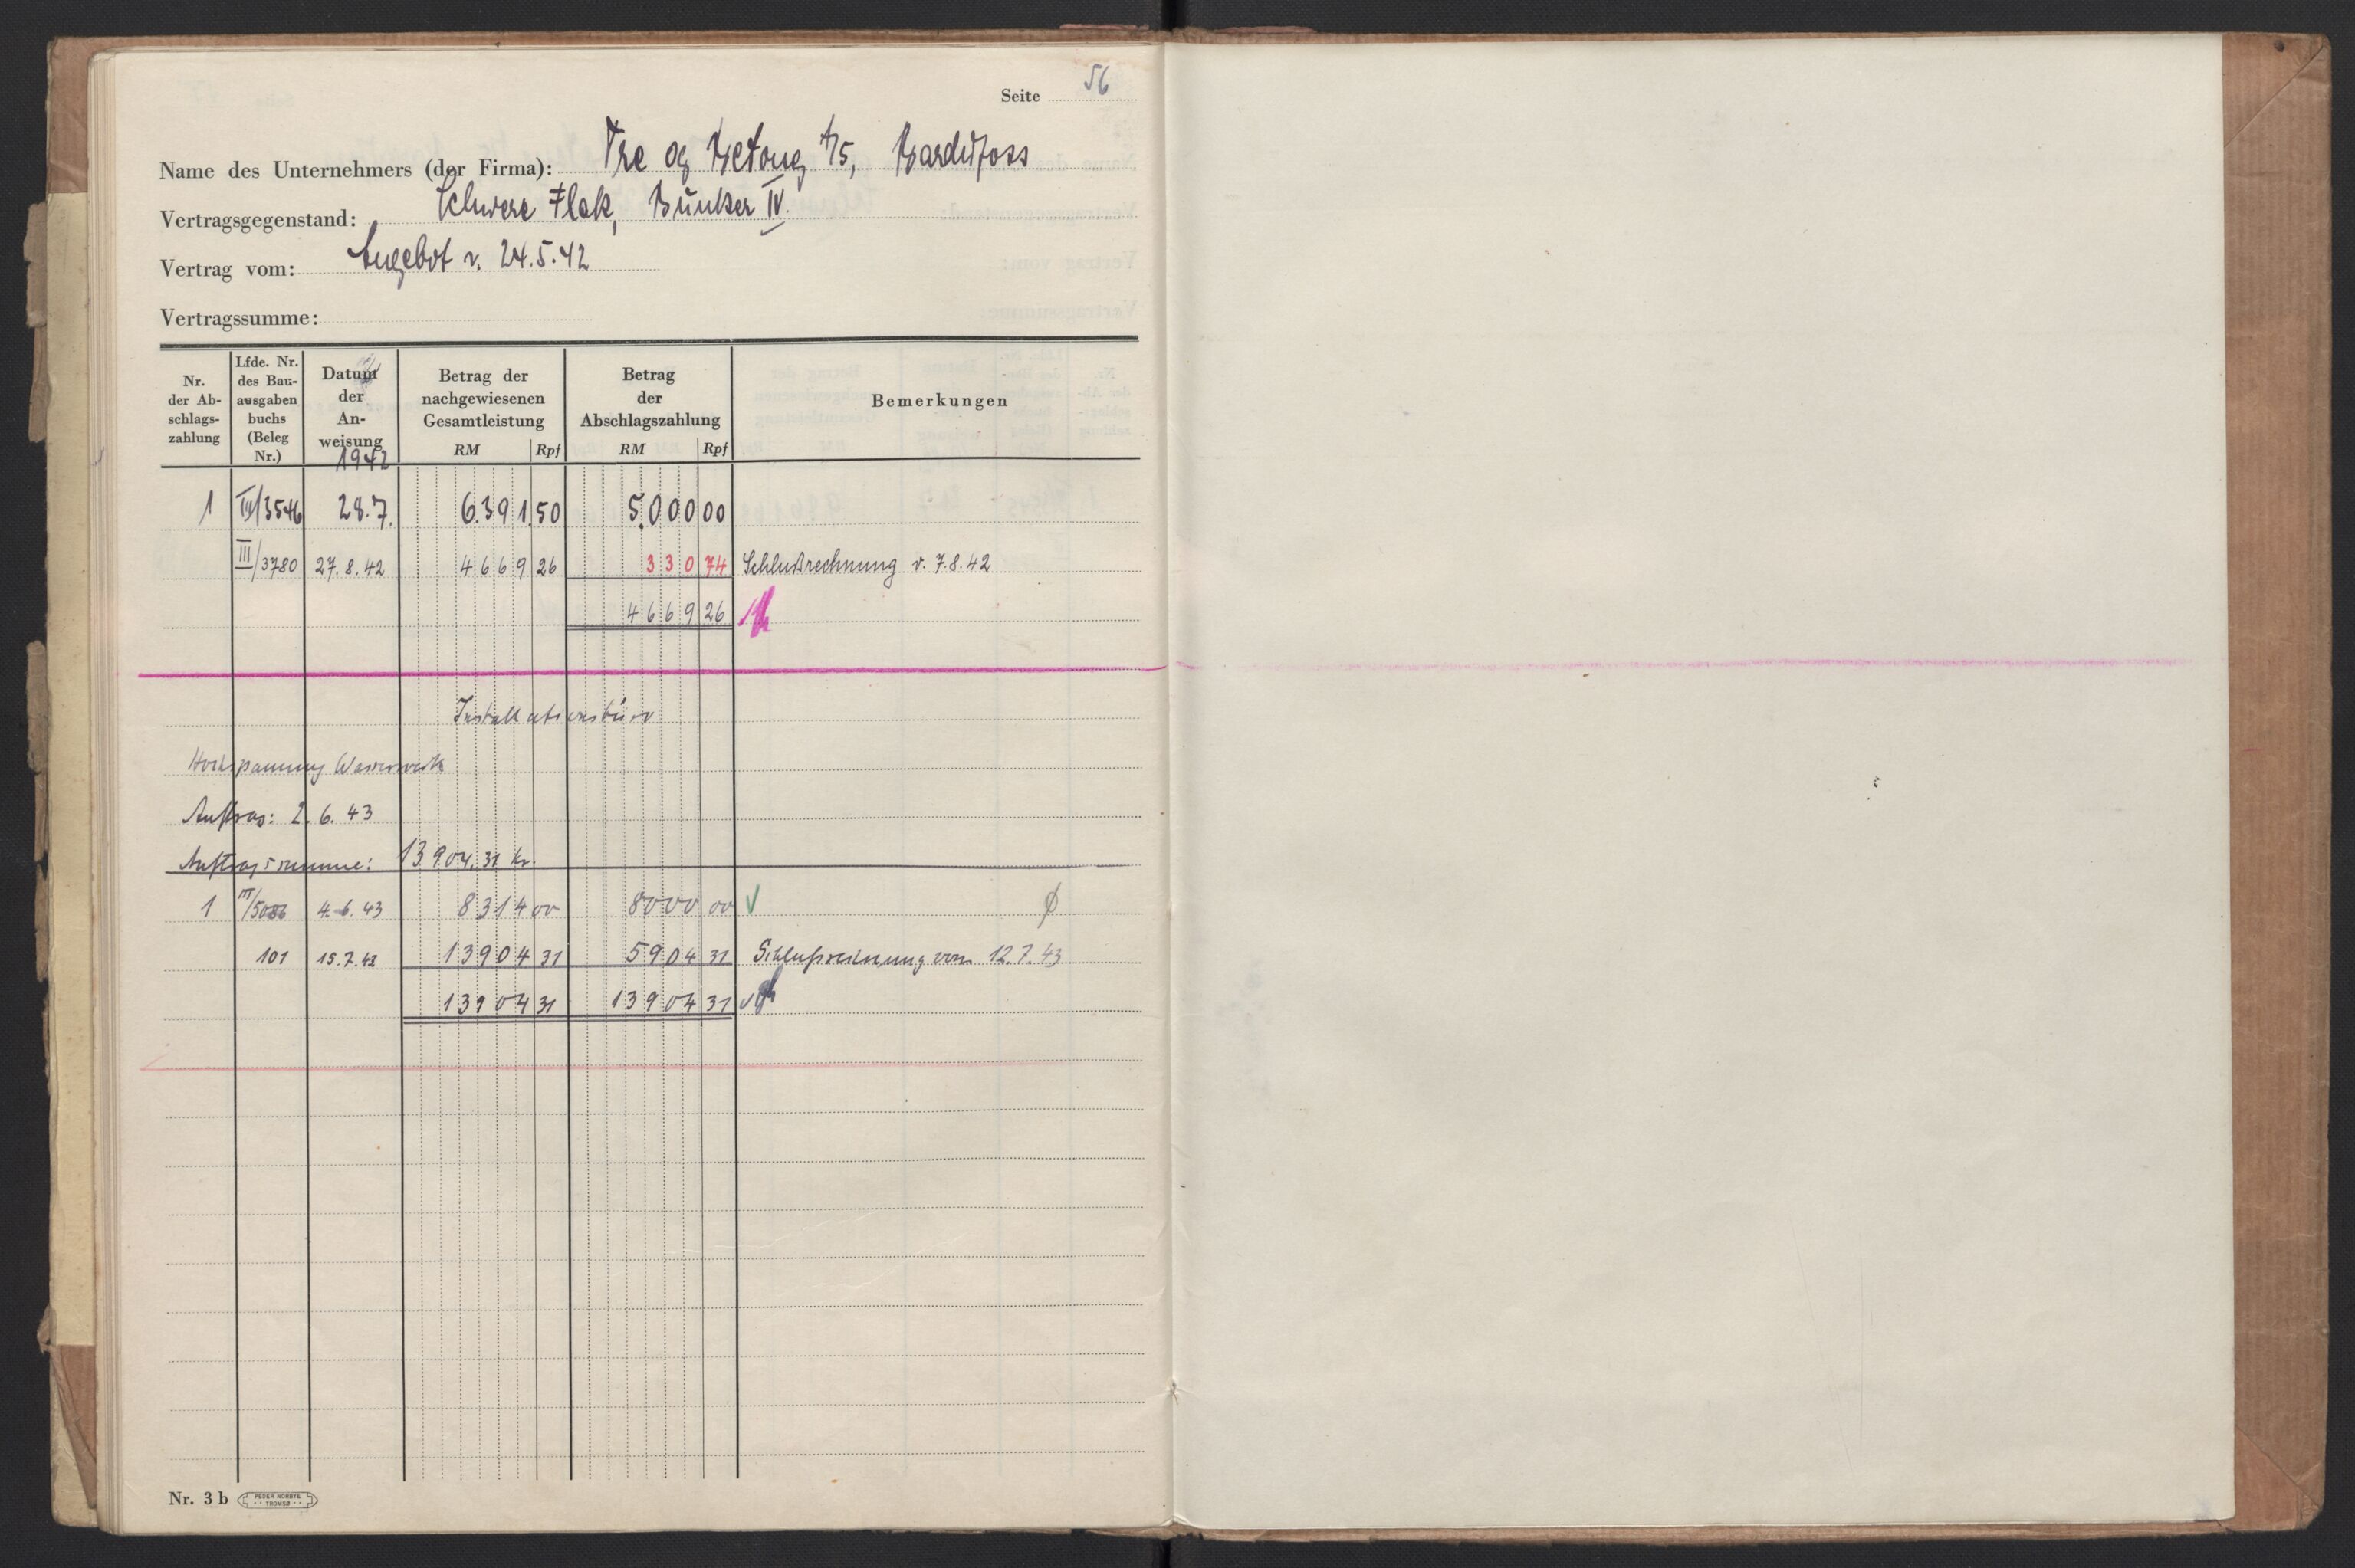 Seite 56
Name des Unternehmers (der Firma): Tre og Betong A/S, Bardufoss
Vertragsgegenstand: Schwere Flak, Bunker IV.
Vertrag vom: Angebot v. 24.5.42
Vertragssumme:
Nr. der Ab- schlags- zahlung
Lfde. Nr. des Bau- ausgaben buchs (Beleg Nr.)
Datum der An- weisung
1942
Betrag der nachgewiesenen Gesamtleistung
RM Rpf
Betrag der Abschlagszahlung
RM Rpf
Bemerkungen
1 III/3546 28.7. 6.391.50 5.000 00
III/3780 27.8.42 4669 26 330 74 Schlußrechnung v. 7.8.42
4669 26
Installationsbüro
Hochspannung Wasserwerk
Auftrag: 2.6.43
Auftragssumme: 13904,31 Kr
1 III/5086 4.6.43 8314 00 8000 00
101 15.7.43 13904 31 5904 31 Schlußrechnung vom 12.7.43
13904 31 13904 31
Nr. 3 b PEDER NORBYE TROMSØ